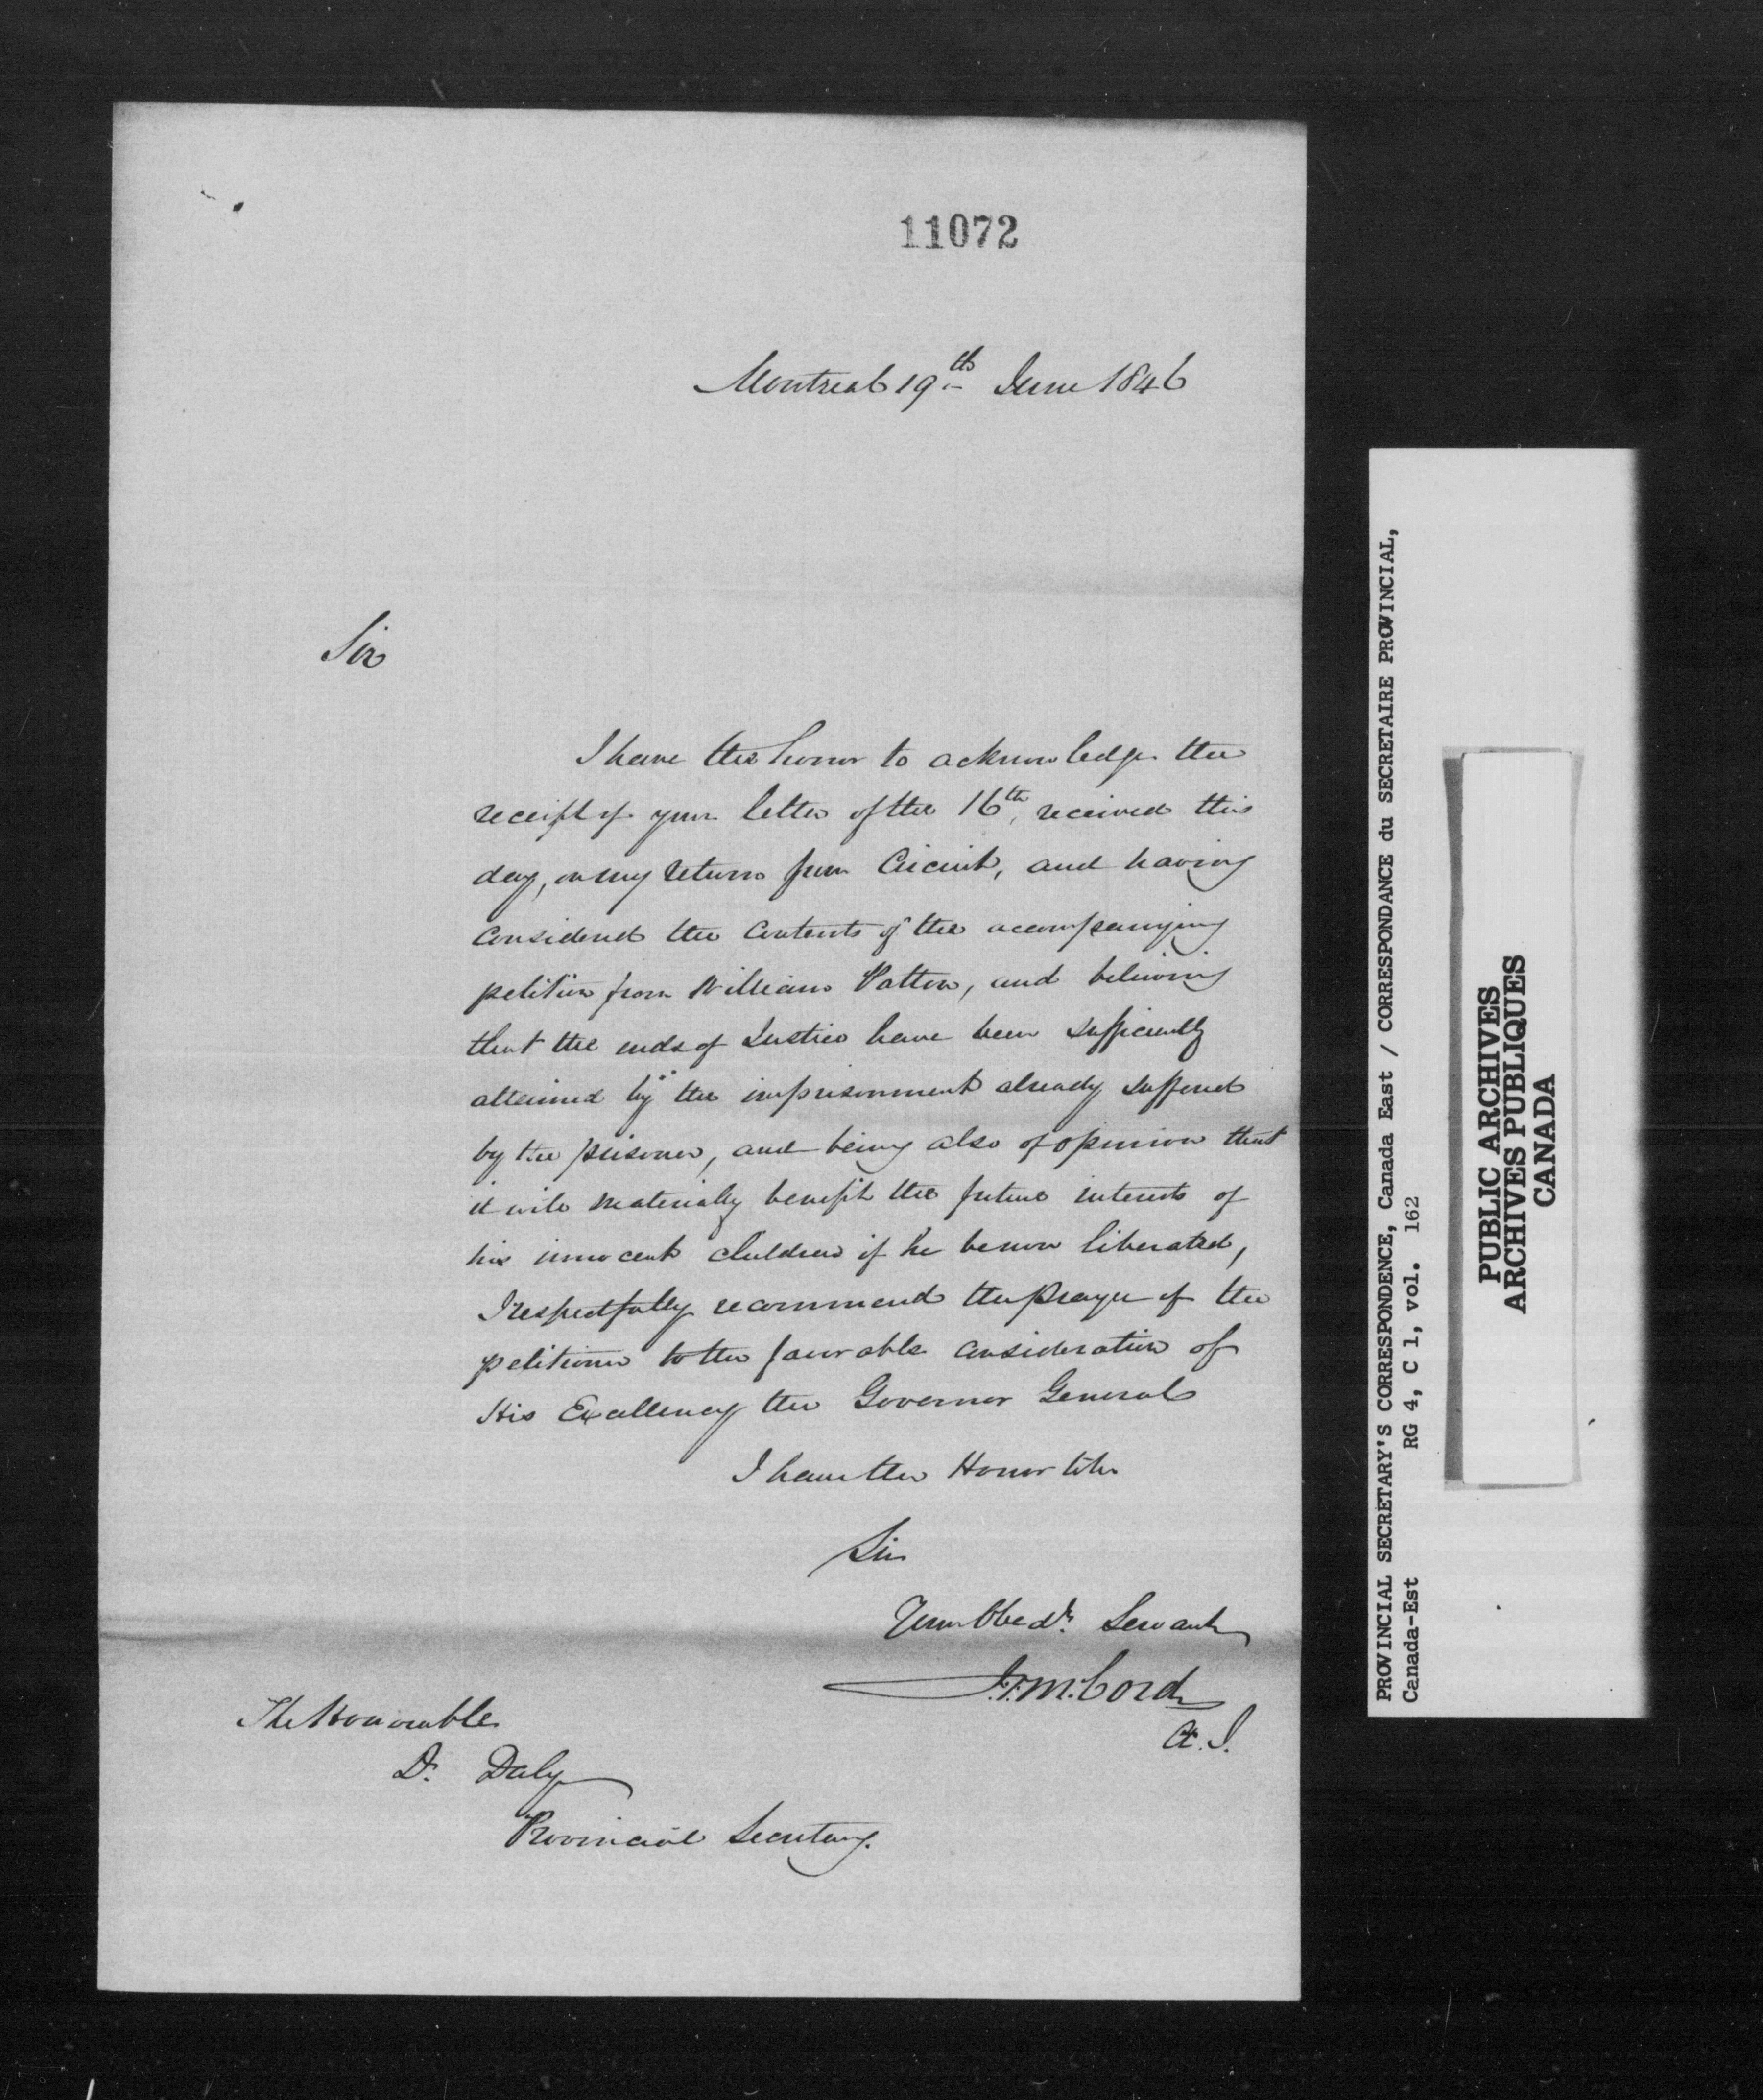 11072
Montreal 19th June 1846
Sir
I have the honor to acknowledge the
receipt of your letter of the 16th, received this
day, on my return from Circuit, and having
considered the contents of the accompanying
petition from William Patton, and believing
that the ends of Justice have been sufficiently
attained by the imprisonment already suffered
by the prisoner, and being also of opinion that
it will materially benefit the future interests of
his innocent children if he be now liberated,
I respectfully recommend the prayer of the
petitioner to the favorable consideration of
His Excellency the Governor General
I have the Honor to be
Sir
Your Obedt. Servant
J.S. McCord
The Honorable
D. Daly
Provincial Secretary.
PROVINCIAL SECRETARY'S CORRESPONDENCE, Canada East / CORRESPONDANCE du SECRETAIRE PROVINCIAL,
Canada-Est RG 4, C 1, vol. 162
PUBLIC ARCHIVES
ARCHIVES PUBLIQUES
CANADA